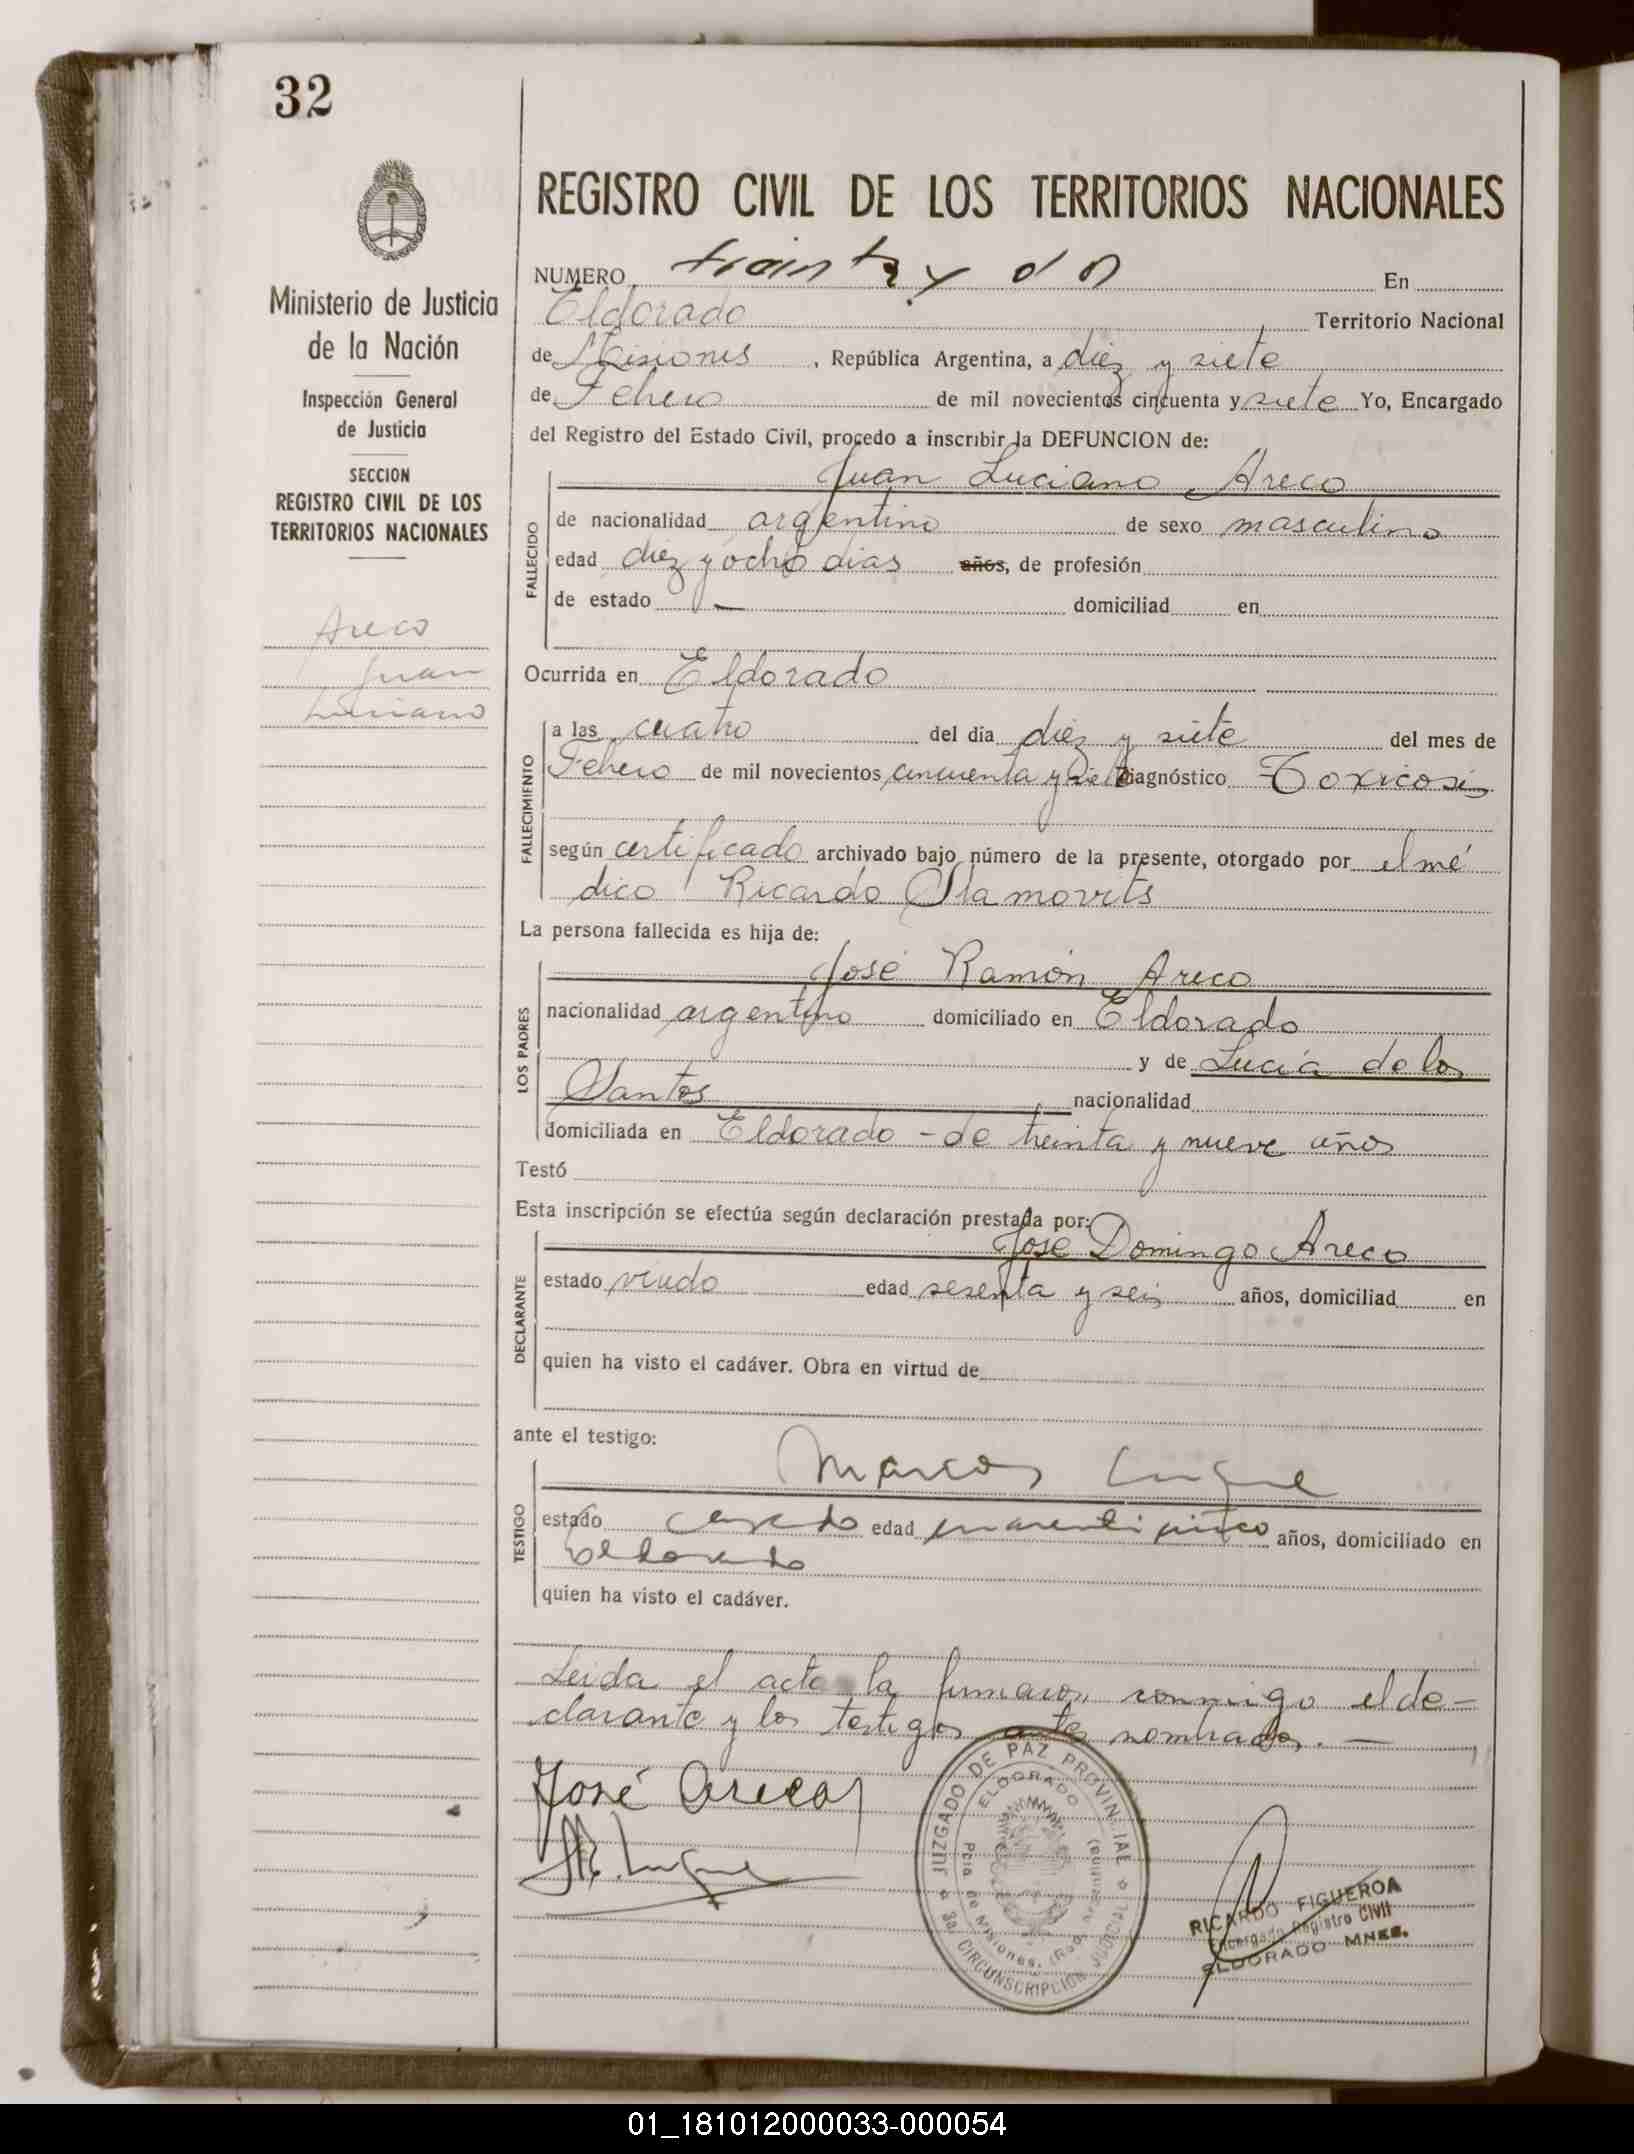 32
REGISTRO CIVIL DE LOS TERRITORIOS NACIONALES
Ministerio de Justicia
de la Nación
Inspección General
de Justicia
SECCION
REGISTRO CIVIL DE LOS
TERRITORIOS NACIONALES
Areco
Juan
Luciano
NUMERO treinta y dos En
Eldorado Territorio Nacional
de Misiones, República Argentina, a diez y siete
de Febrero de mil novecientos cincuenta y siete Yo, Encargado
del Registro del Estado Civil, procedo a inscribir la DEFUNCION de:
Juan Luciano Areco
FALLECIDO
de nacionalidad argentino de sexo masculino
edad diez y ocho dias años, de profesión
de estado — domiciliad en
Ocurrida en Eldorado
FALLECIMIENTO
a las cuatro del dia diez y siete del mes de
Febrero de mil novecientos cincuenta y siete Diagnóstico Toxicosis
según certificado archivado bajo número de la presente, otorgado por el mé
dico Ricardo Stamovits
La persona fallecida es hija de:
LOS PADRES
José Ramón Areco
nacionalidad argentino domiciliado en Eldorado
y de Lucía de los
Santos nacionalidad
domiciliada en Eldorado - de treinta y nueve años
Testó
Esta inscripción se efectúa según declaración prestada por:
DECLARANTE
José Domingo Areco
estado viudo edad sesenta y seis años, domiciliad en
quien ha visto el cadáver. Obra en virtud de
ante el testigo:
TESTIGO
Marcos Luque
estado casado edad cuarenticinco años, domiciliado en
Eldorado
quien ha visto el cadáver.
Leida el acta la firmaron conmigo el de-
clarante y los testigos antes nombrados. —
José Areco
M. Luque
JUZGADO DE PAZ PROVINCIAL
3a. CIRCUNSCRIPCIÓN JUDICIAL
ELDORADO
Pcia. de Misiones. (Rep. Argentina)
RICARDO FIGUEROA
Encargado Registro Civil
ELDORADO MNES.
01_181012000033-000054